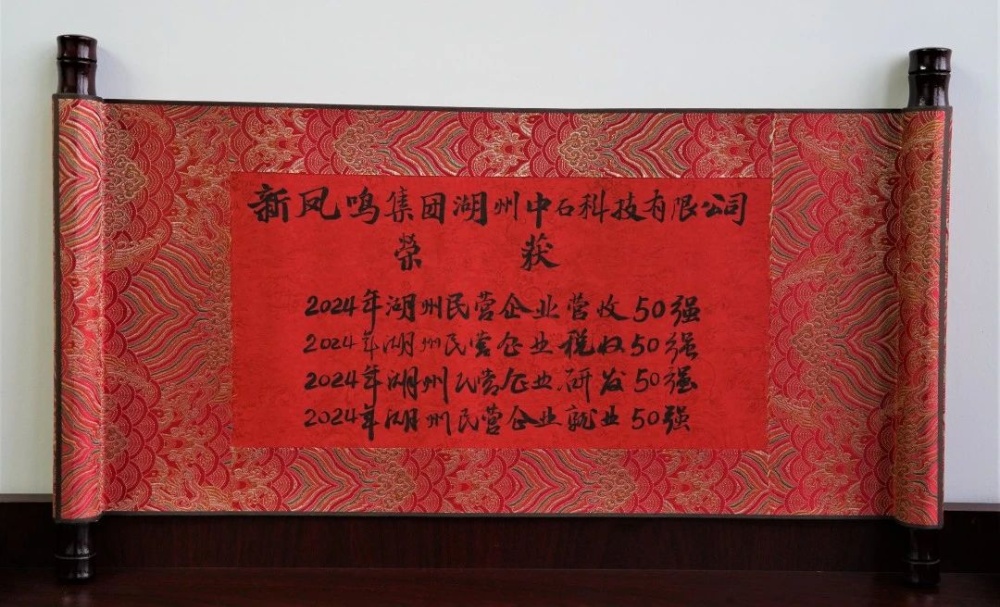 新凤鸣集团湖州中石科技有限公司
荣获
2024年湖州民营企业营收50强
2024年湖州民营企业税收50强
2024年湖州民营企业研发50强
2024年湖州民营企业就业50强